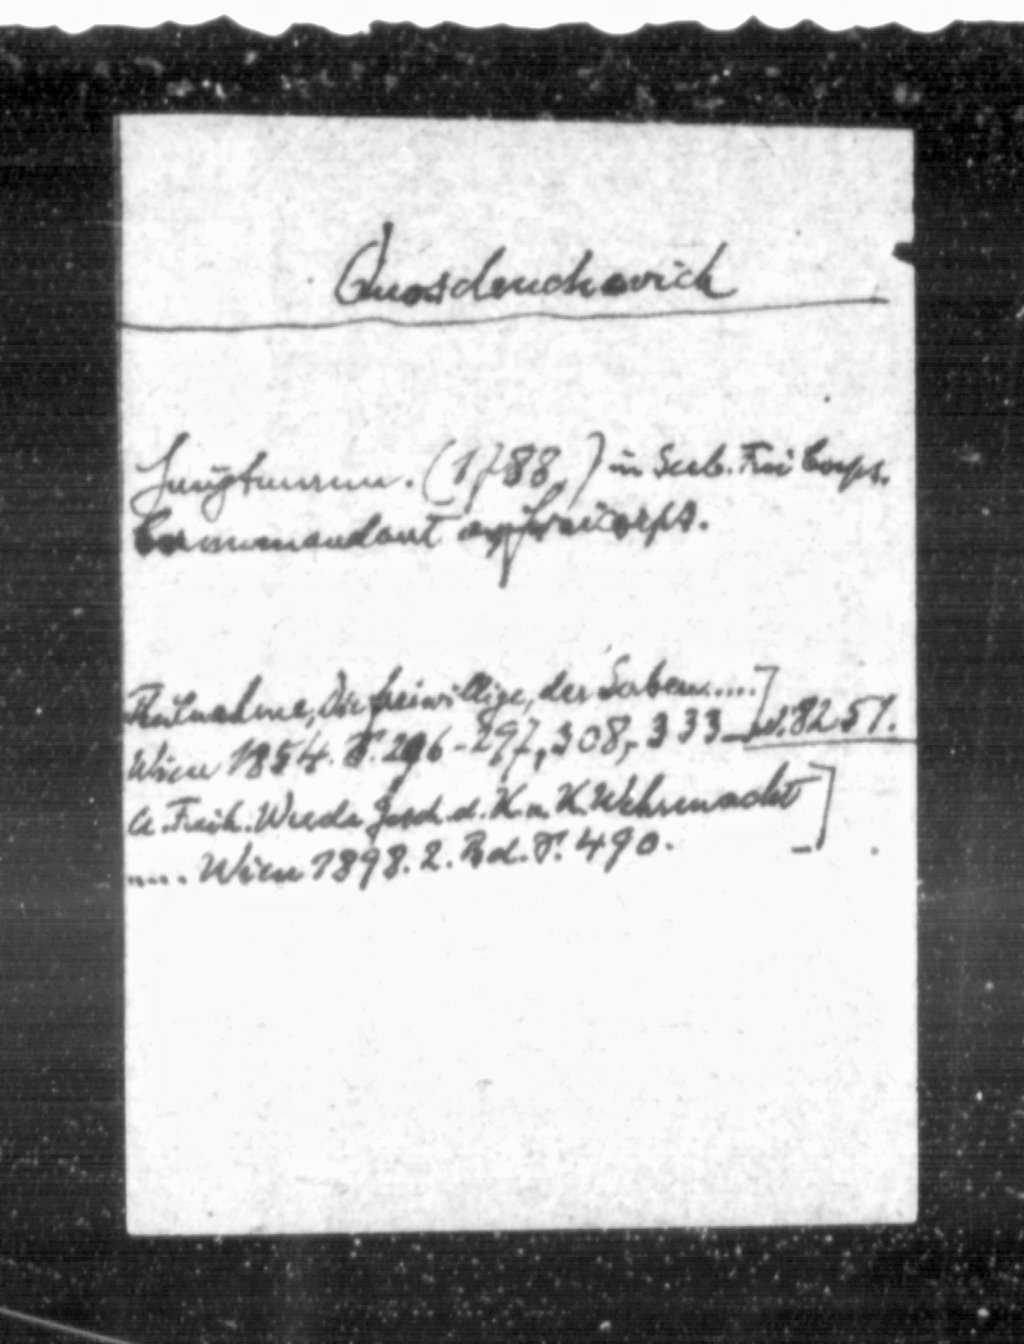 Quosdenchovich
(1788.) in Serb. Frei Corps.
Commandant Freicorps.
Theilnahme, Die freiwillige, der Serben.....]
Wien 1854. S. 296-297, 308, 333 — 8251.
A. Freih. Wrede Gesch. d. K. u. K. Wehrmacht]
.... Wien 1898. 2. Bd. S. 490. —